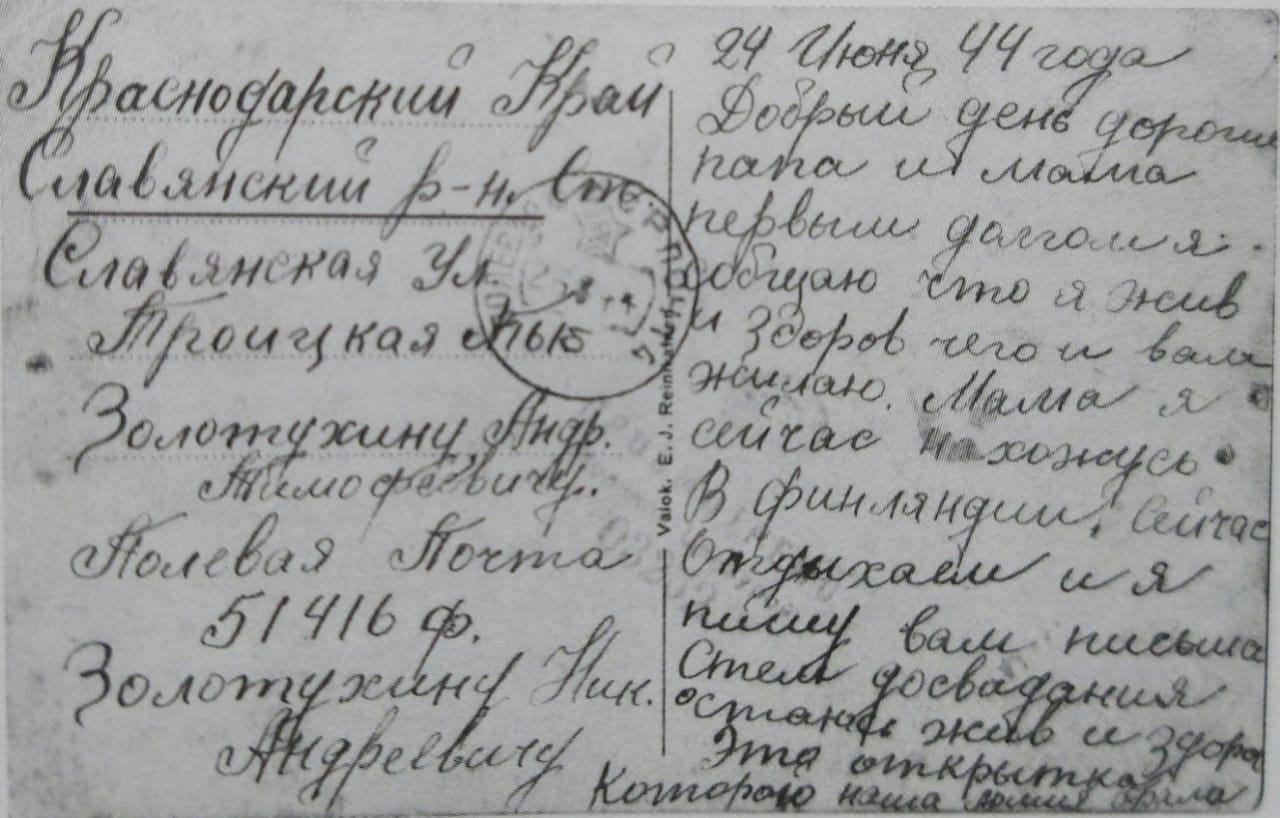 Краснодарский Край
Славянский р-н. Ст.
Славянская Ул
Троицкая
Золотухину Андр.
Тимофеевичу.
Полевая Почта
51416 ф.
Золотухину Ник.
Андреевичу
Valok. E. J. Reinikainen
24 Июня 44 года
Добрый день дорогие
папа и мама
первым долгом я
собщаю что я жив
и здоров чего и вам
жилаю. Мама я
сейчас нахожусь
В финляндии. Сейчас
Отдыхаем и я
пишу вам письма
Стем досвадания
остаюсь жив и здоров
Эта открытка
Которою наша армия брала